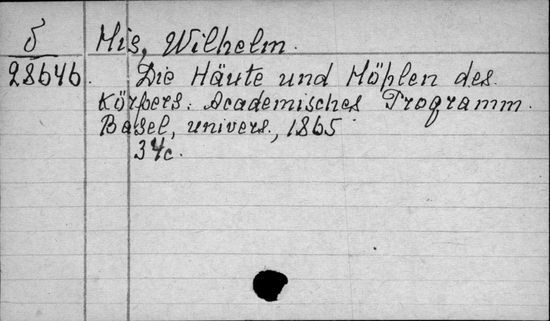 δ
His, Wilhelm.
28646. Die Häute und Höhlen des
Körpers: Academisches Programm.
Basel, univers., 1865
34c.